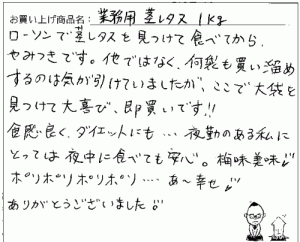 お買い上げ商品名： 業務用 茎レタス 1kg
ローソンで茎レタスを見つけて食べてから、
やみつきです。他ではなく、何袋も買い溜め
するのは気が引けていましたが、ここで大袋を
見つけて大喜び、即買いです!!
食感良く、ダイエットにも… 夜勤のある私に
とっては夜中に食べても安心。梅味美味♪
ポリポリポリポリ…. あ〜幸せ♪
ありがとうございました!